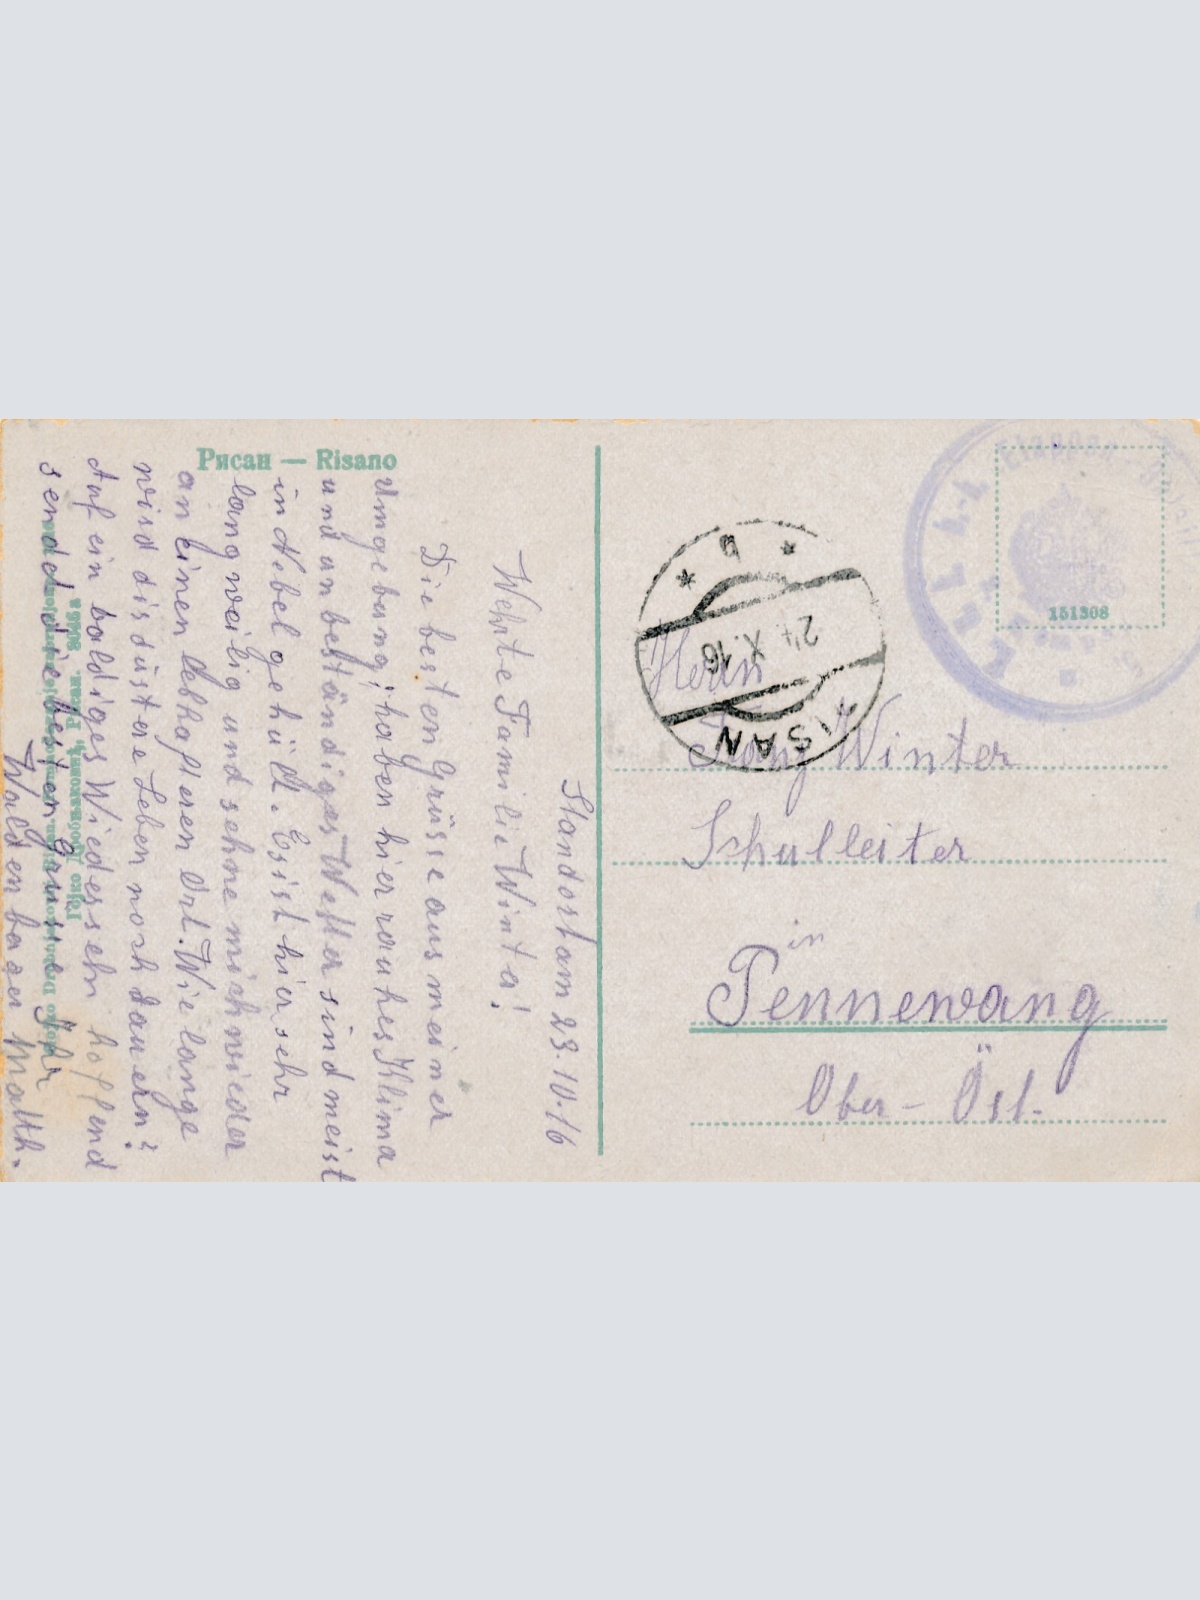 Рисан — Risano
Standort am 23.10.16
Wehrte Familie Winter!
Die besten Grüsse aus meiner
Umgebung; haben hier rauhes Klima
und unbeständiges Wetter sind meist
in Nebel gehüllt. Es ist hier sehr
langweilig und sehne mich wieder
an einen lebhafteren Ort. Wie lange
wird dis düstere Leben noch dauern?
Auf ein baldiges Wiedersehn hoffend
sendet die besten Grüsse Ihr
Waldenberger Matth.
151308
RISAN
24. X. 16
b
Herrn
Franz Winter
Schulleiter
in
Pennewang
Ober-Öst.